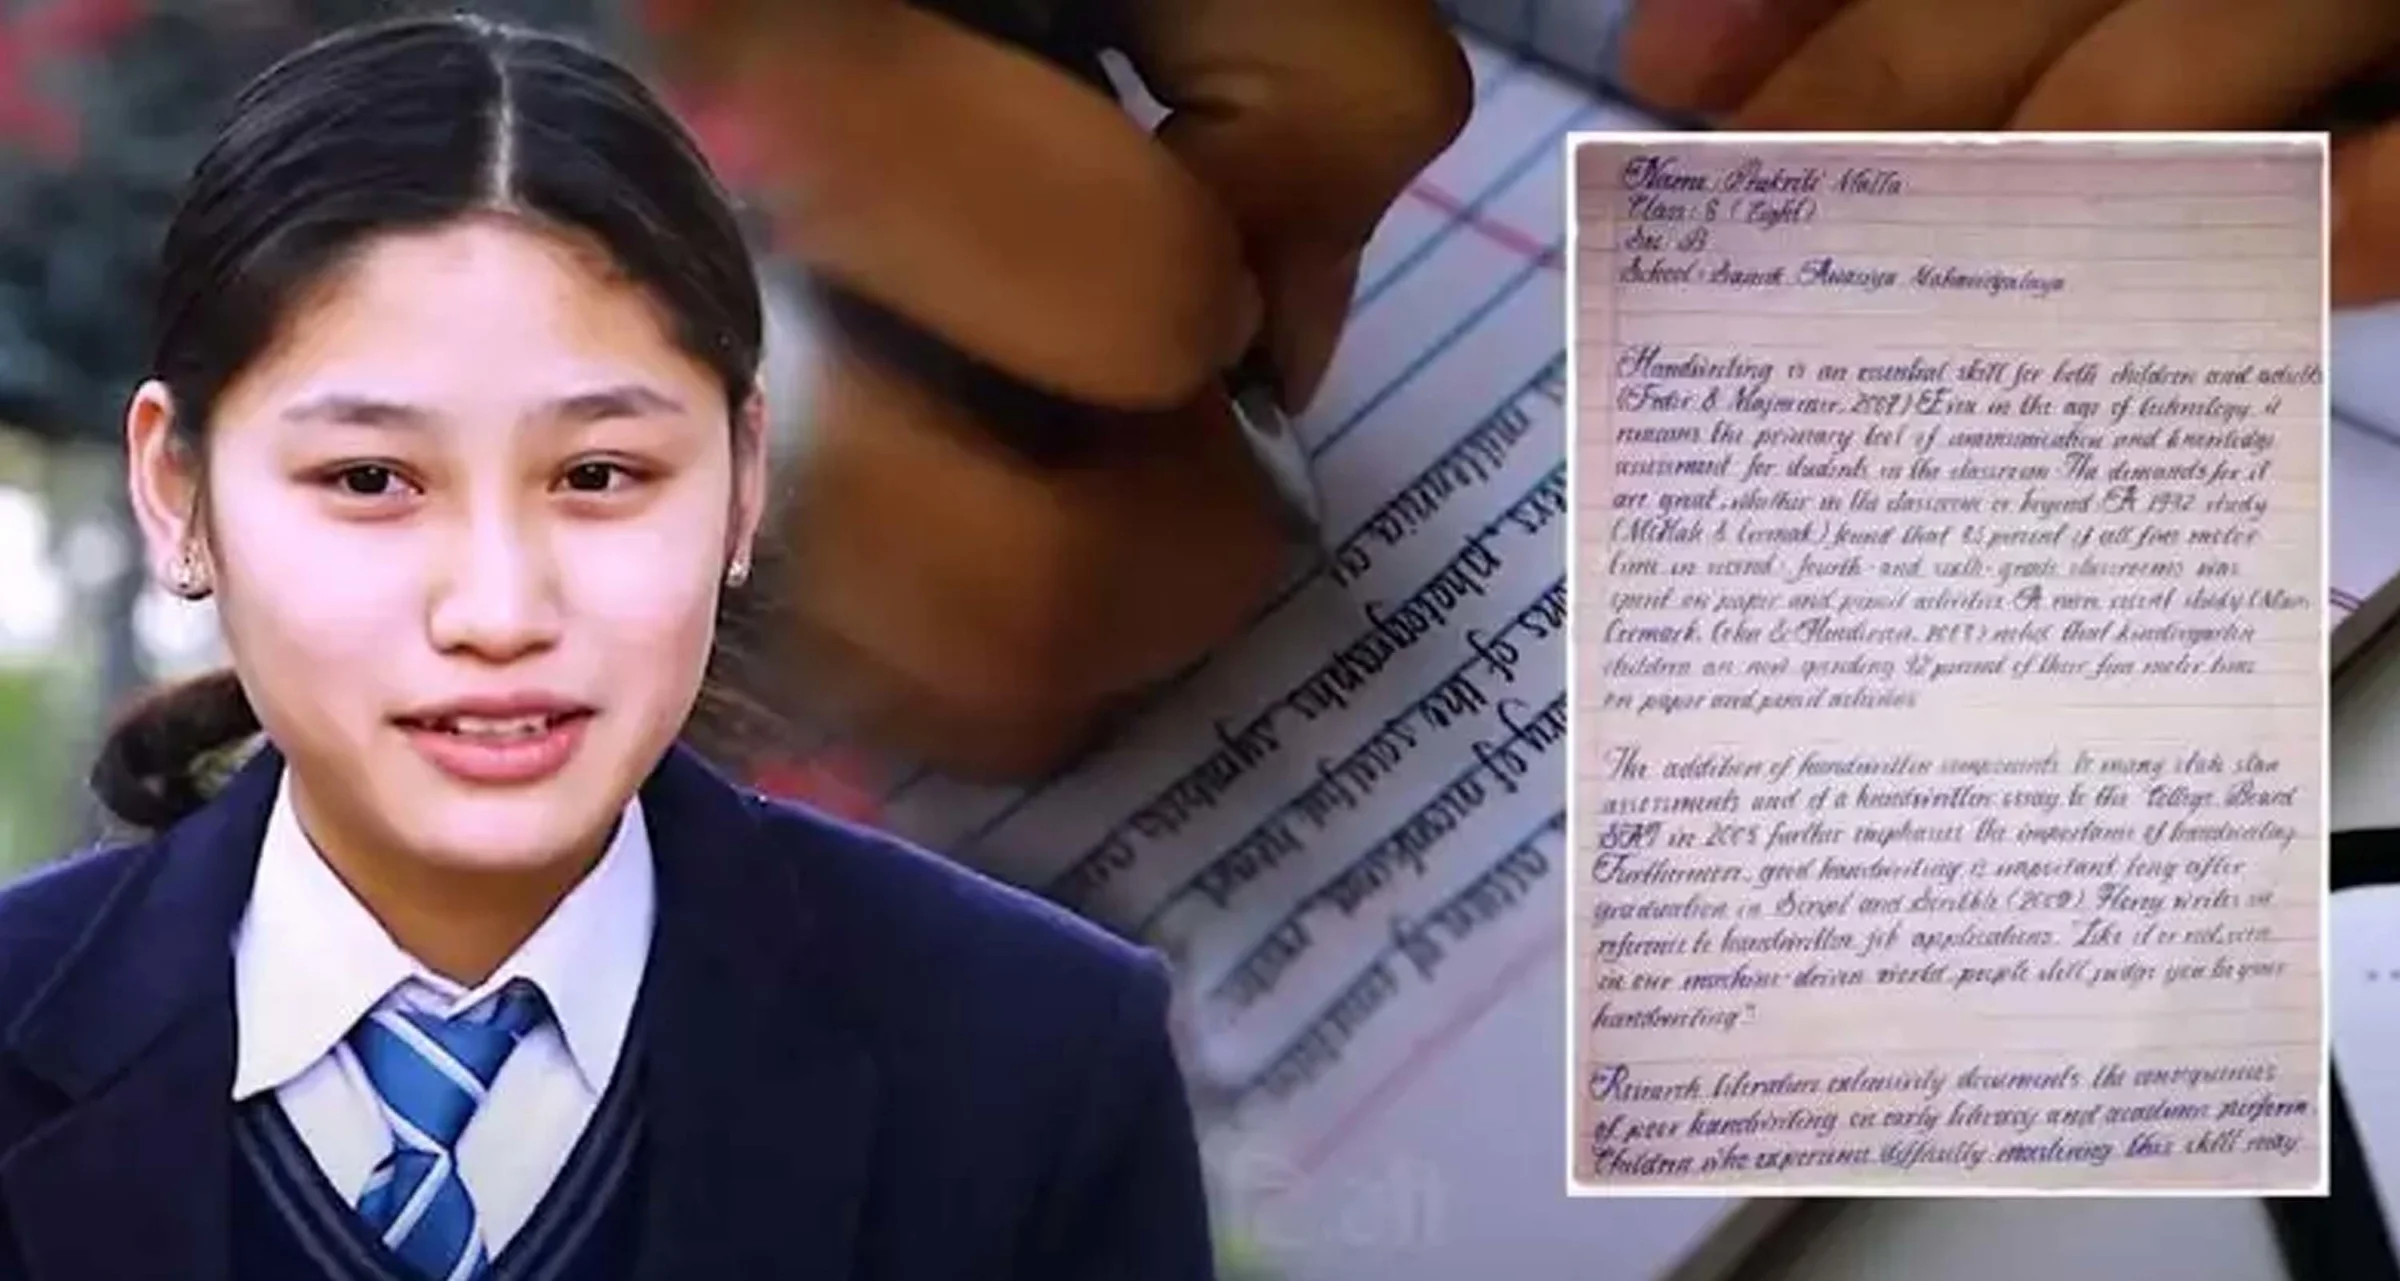 Name: Prakriti Malla
Class: 8 (Eight)
Sec: B
School: Sainik Awasiya Mahavidyalaya
Handwriting is an essential skill for both children and adults
(Feder & Majnemer, 2007) Even in the age of technology, it
remains the primary tool of communication and knowledge
assessment for students in the classroom. The demands for it
are great, whether in the classroom or beyond. A 1992 study
(McHale & Cermak) found that 85 percent of all fine motor
time in second-, fourth- and sixth-grade classrooms was
spent on paper and pencil activities. A more recent study (Marr,
Cermak, Cohn & Henderson, 2003) noted that kindergarten
children are now spending 42 percent of their fine motor time
on paper and pencil activities
The addition of handwritten components to many state stan
assessments and of a handwritten essay to the College Board
SAT in 2005 further emphasises the importance of handwriting
Furthermore, good handwriting is important long after
graduation in Script and Scribble (2009), Florey writes in
reference to handwritten job applications, "Like it or not, even
in our machine-driven world, people still judge you by your
handwriting"
Research literature extensively documents the consequences
of poor handwriting on early literacy and academic perform
Children who experience difficulty mastering this skill may
photographs, symbols
of the soulful heart